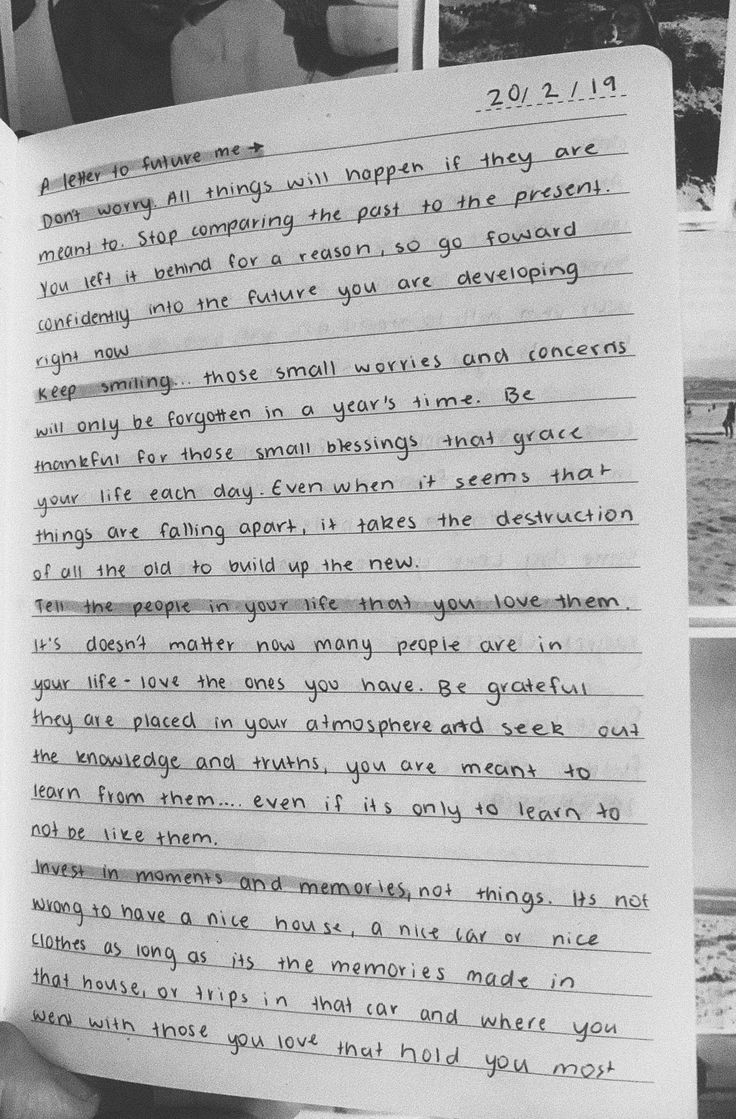 20/2/19
A letter to future me →
Don't worry. All things will happen if they are
meant to. Stop comparing the past to the present.
You left it behind for a reason, so go foward
confidently into the future you are developing
right now
Keep smiling... those small worries and concerns
will only be forgotten in a year's time. Be
thankful for those small blessings that grace
your life each day. Even when it seems that
things are falling apart, it takes the destruction
of all the old to build up the new.
Tell the people in your life that you love them.
It's doesn't matter how many people are in
your life - love the ones you have. Be grateful
they are placed in your atmosphere and seek out
the knowledge and truths, you are meant to
learn from them.... even if its only to learn to
not be like them.
Invest in moments and memories, not things. Its not
wrong to have a nice house, a nice car or nice
clothes as long as its the memories made in
that house, or trips in that car and where you
went with those you love that hold you most